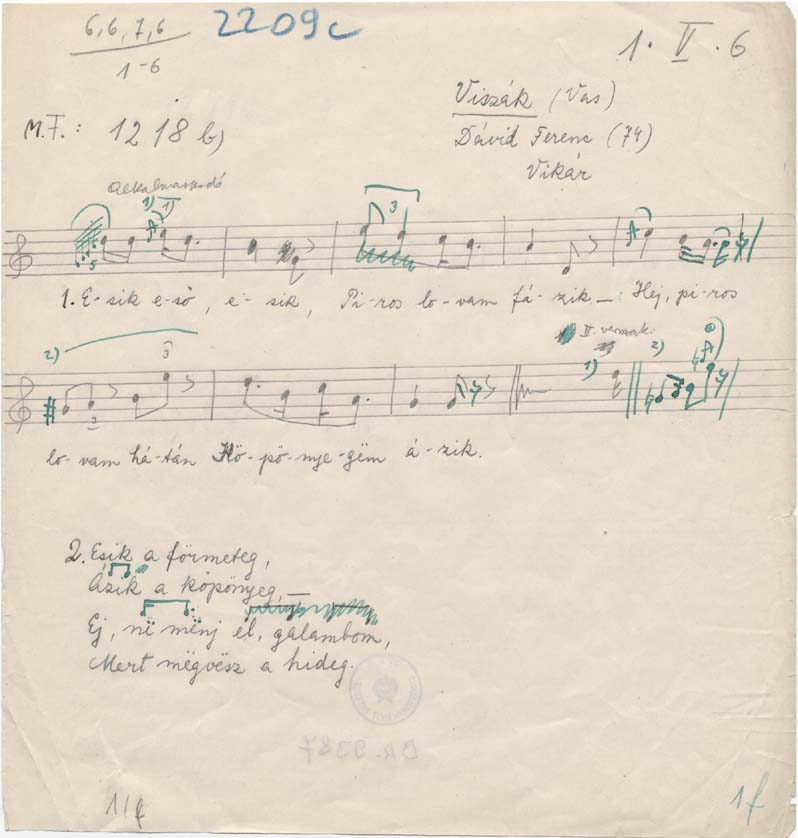 6,6,7,6
1-6
2209c
1. V. 6
M.F.: 1218 b)
Viszák (Vas)
Dávid Ferenc (74)
Vikár
Alkalmazkodó
1) 1)
3
1. E-sik e-ső, e-sik, Pi-ros lo-vam fá-zik, – Hej, pi-ros
2)
3
II. versszak:
1) 2)
lo-vam há-tán Kö-pö-nye-gëm á-zik.
2. Esik a förmeteg,
Ázik a köpönyeg, –
Ej, në mënj el, galambom,
Mert mëgvësz a hideg.
1/f
1f